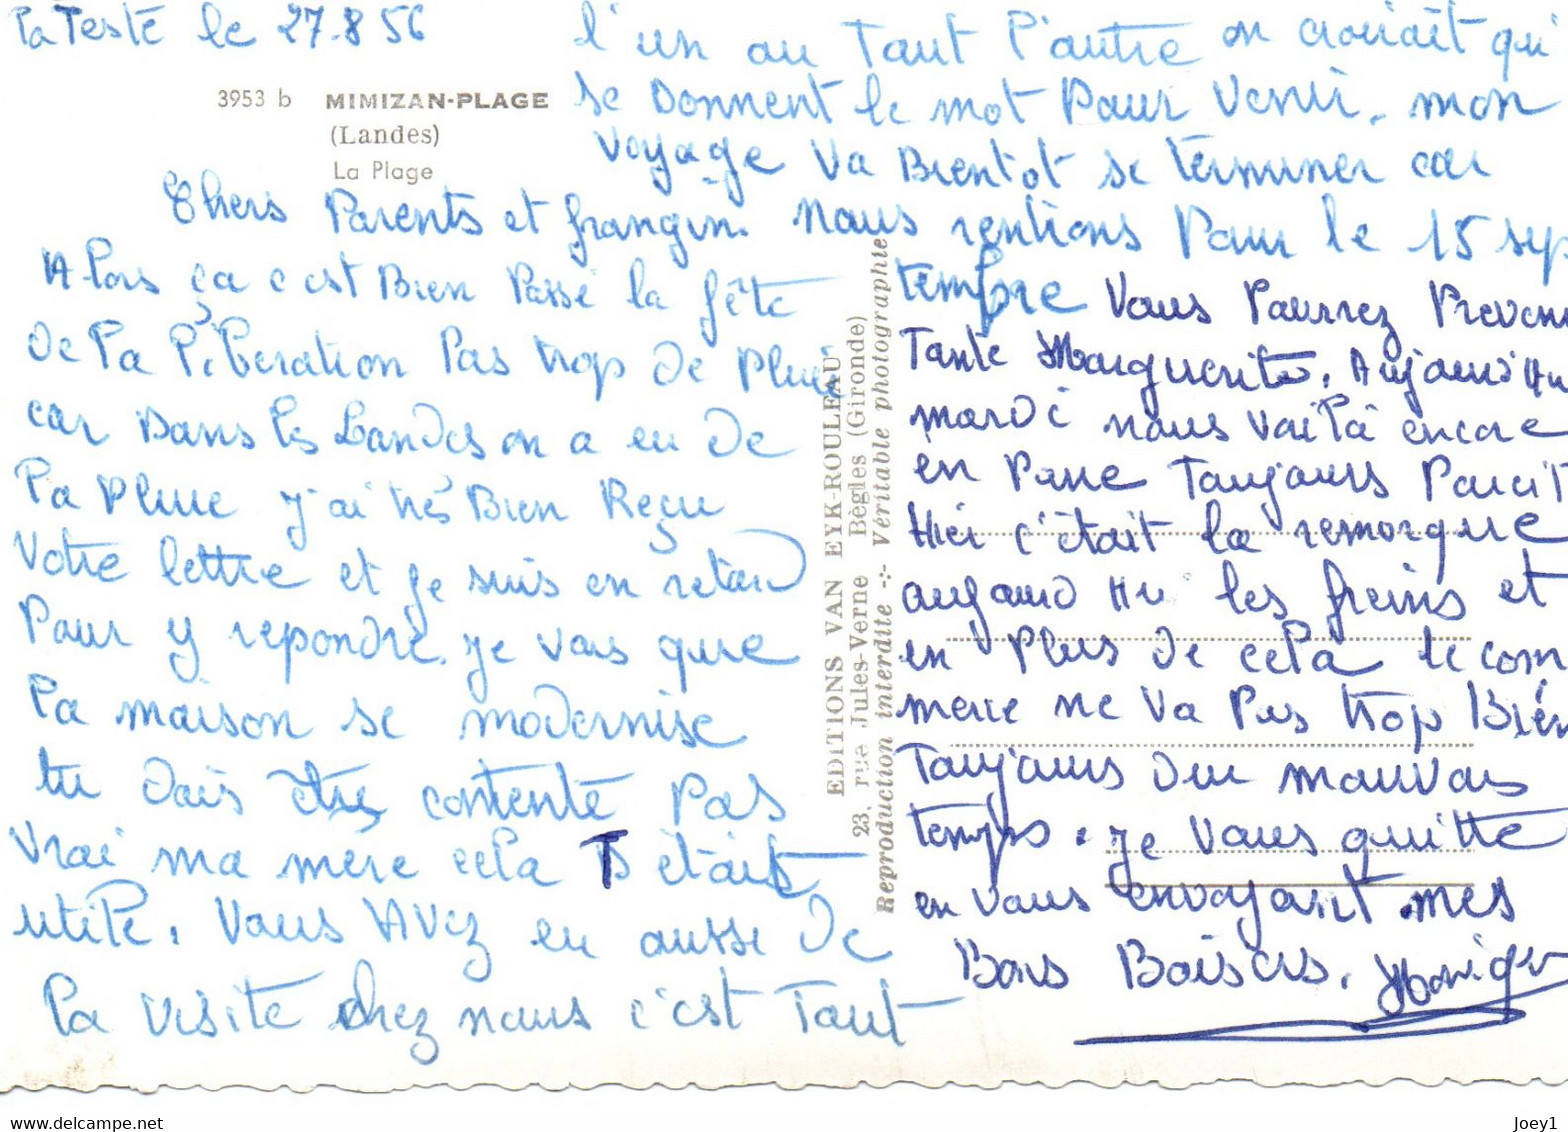 La Teste le 27.8.56
3953 b MIMIZAN-PLAGE
(Landes)
La Plage
Chers Parents et frangin.
Alors ça c'est Bien Passé la fête
de la liberation Pas trop de Pluie
car Dans les Landes on a eu de
la Pluie j'ai très Bien Reçu
votre lettre et je suis en retard
Pour y repondre. Je vois que
la maison se modernise
tu dois être contente pas
vrai ma mère cela T etait
utile. Vous Avez eu aussi de
la visite chez nous c'est Tout
l'un ou Tout l'autre on croirait qu'i
se Donnent le mot Pour Venir. mon
voyage va Bientot se terminer car
nous rentrons Pour le 15 sep
tembre Vous Pourrez Preveni
Tante Marguerite. Aujourd'hu
mardi nous voilà encore
en Pane Toujours Pareil
Hier c'était la remorque
aujourd Hu les freins et
en Plus de cela le com
merce ne va Pas trop Bien
Toujours du mauvais
temps. je vous quitte
en vous envoyant mes
Bons Baisers. Moniqu
EDITIONS VAN EYK-ROULEAU
23, rue Jules-Verne Bègles (Gironde)
Reproduction interdite -:- Véritable photographie
Joey1